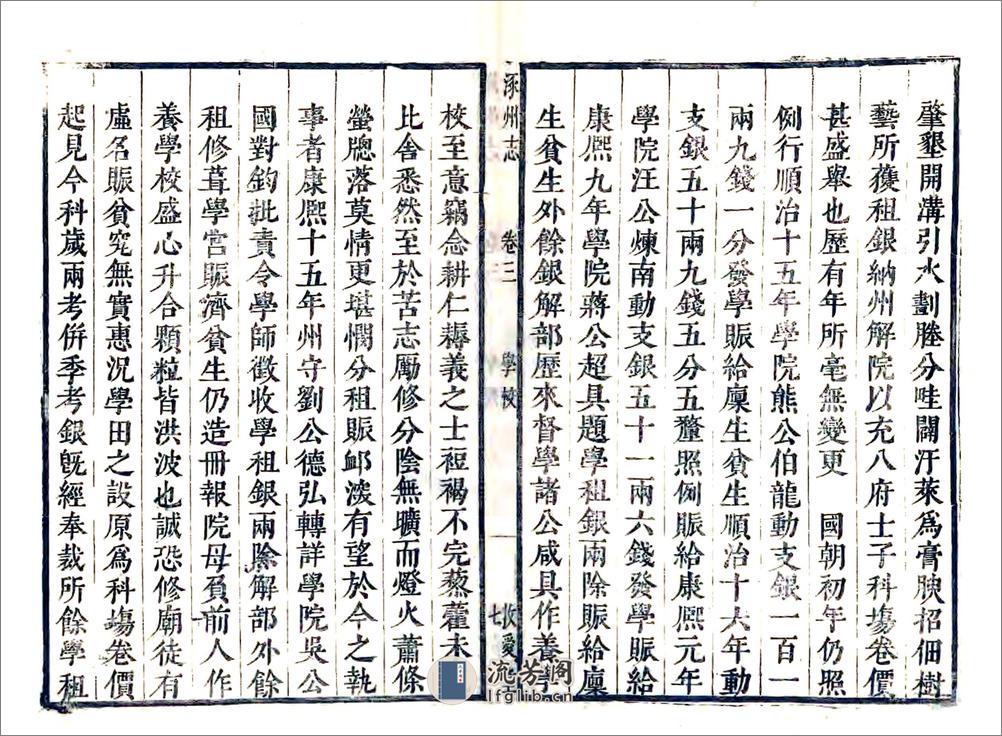 肇墾開溝引水劃塍分畦闢汙萊爲膏腴招佃樹
藝所穫租銀納州解院以充八府士子科塲卷價
甚盛舉也歷有年所毫無變更 國朝初年仍照
例行順治十五年學院熊公伯龍動支銀一百一
兩九錢一分發學賑給廩生貧生順治十六年動
支銀五十兩九錢五分五釐照例賑給康熙元年
學院汪公煉南動支銀五十一兩六錢發學賑給
康熙九年學院蔣公超具題學租銀兩除賑給廩
生貧生外餘銀解部歷來督學諸公咸具作養學
涿州志 卷三 學校 七
校至意竊念耕仁耨義之士裋褐不完藜藿未
比舍悉然至於苦志厲修分陰無曠而燈火蕭條
螢牕落莫情更堪憫分租賑䘏淡有望於今之執
事者康熙十五年州守劉公德弘轉詳學院吳公
國對鈞批責令學師徵收學租銀兩除解部外餘
租修葺學宮賑濟貧生仍造冊報院毋負前人作
養學校盛心升合顆粒皆洪波也誠恐修廟徒有
虛名賑貧究無實惠況學田之設原爲科塲卷價
起見今科歲兩考併季考銀旣經奉裁所餘學租
流芳閣
lfglib.cn